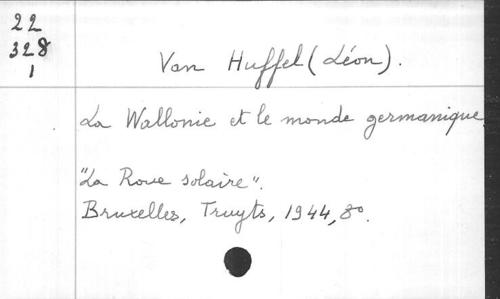 22
328
1
Van Huffel (Léon).
La Wallonie et le monde germanique
"La Roue solaire".
Bruxelles, Truyts, 1944, 8°.